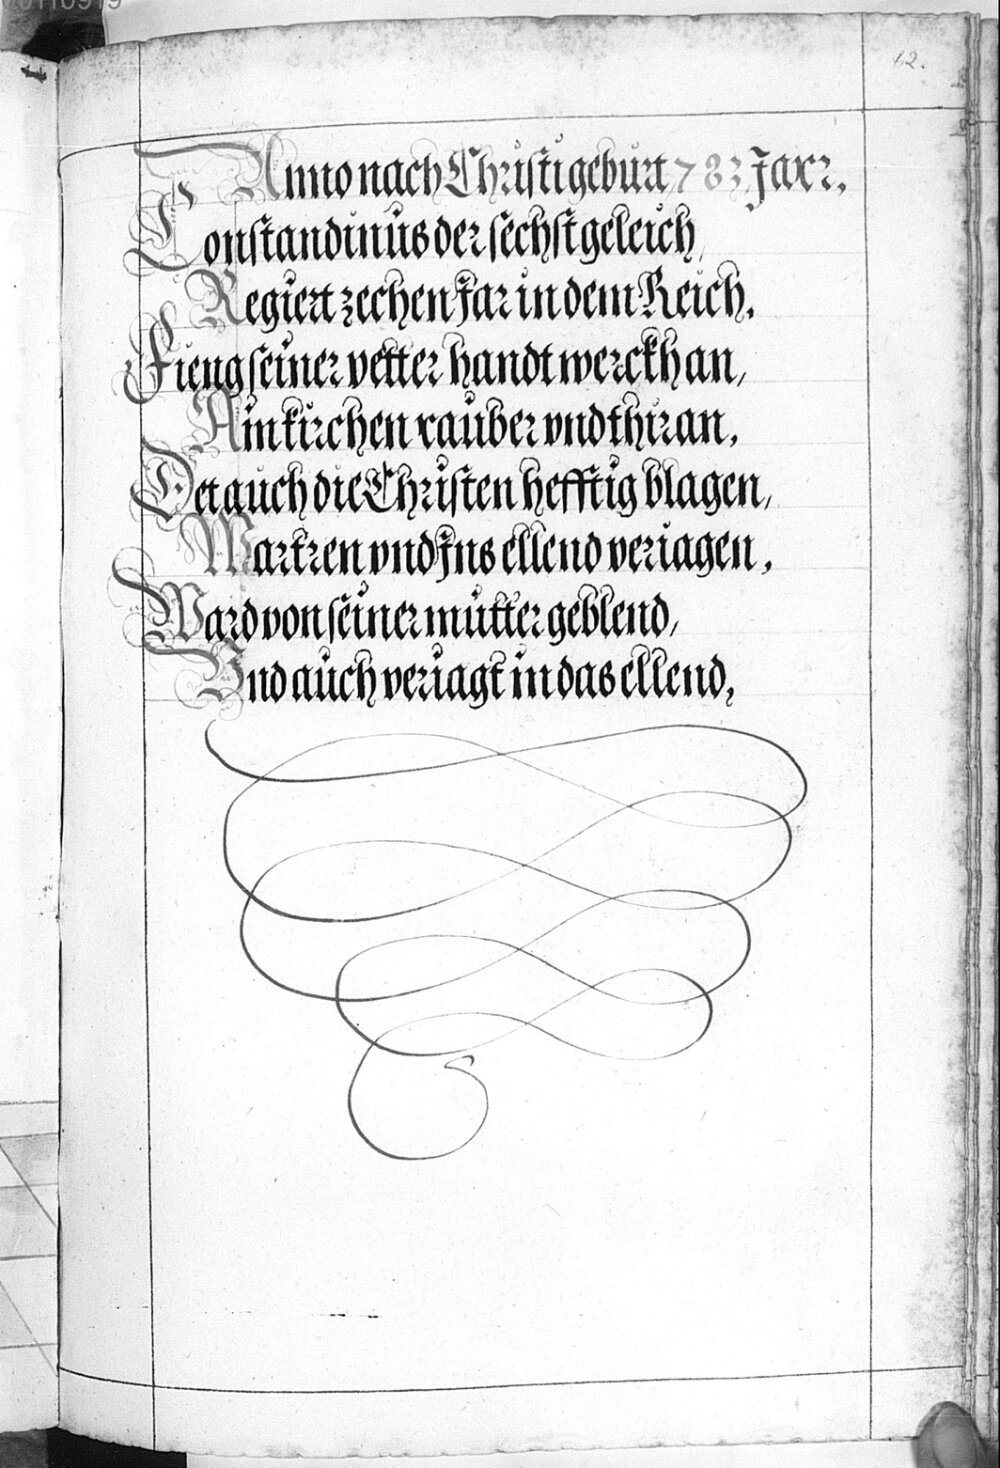 62.
Anno nach Christi geburt 783 Jar.
Constandinus der sechst geleich,
Regiert zechen Jar in dem Reich.
Fieng seiner vetter handtwerckh an,
Ain kirchen rauber vnd thiran.
Det auch die Christen hefftig blagen,
Martren vnd Ins ellend veriagen.
Ward von seiner mutter geblend,
Vnd auch veriagt in das ellend.